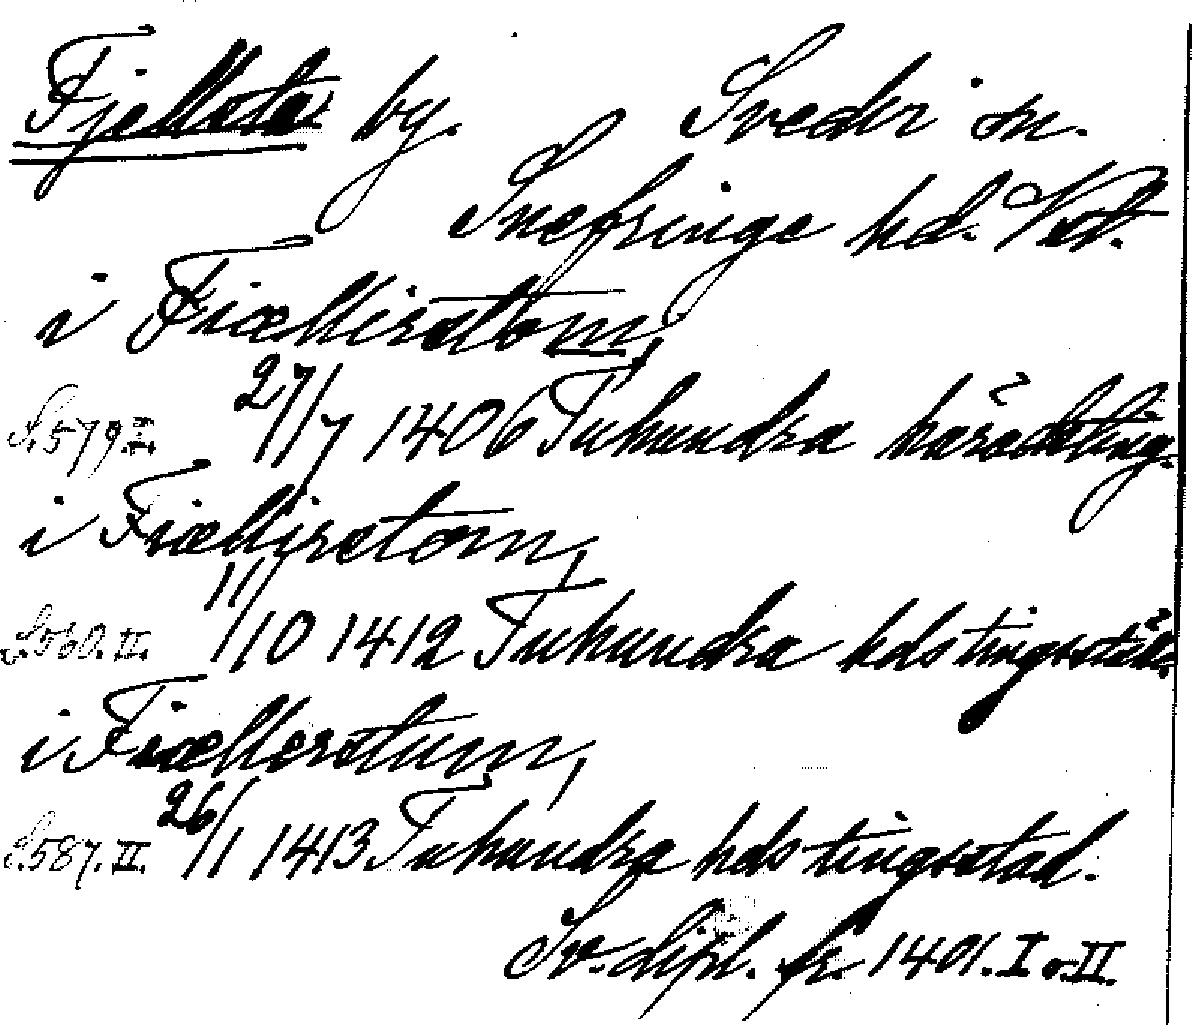 Fjellsta by. Svedvi sn.
Snefringe hd. Vstm.
i Fiællirstom,
S. 579 I. 27/7 1406 Tuhundra häradsting.
i Fiællirstom,
S. 560. II. 11/10 1412 Tuhundra hds tingsställe.
i Fiællerstum,
S. 587. II. 26/1 1413 Tuhundra hds tingsstad.
Sv. dipl. fr. 1401. I o. II.